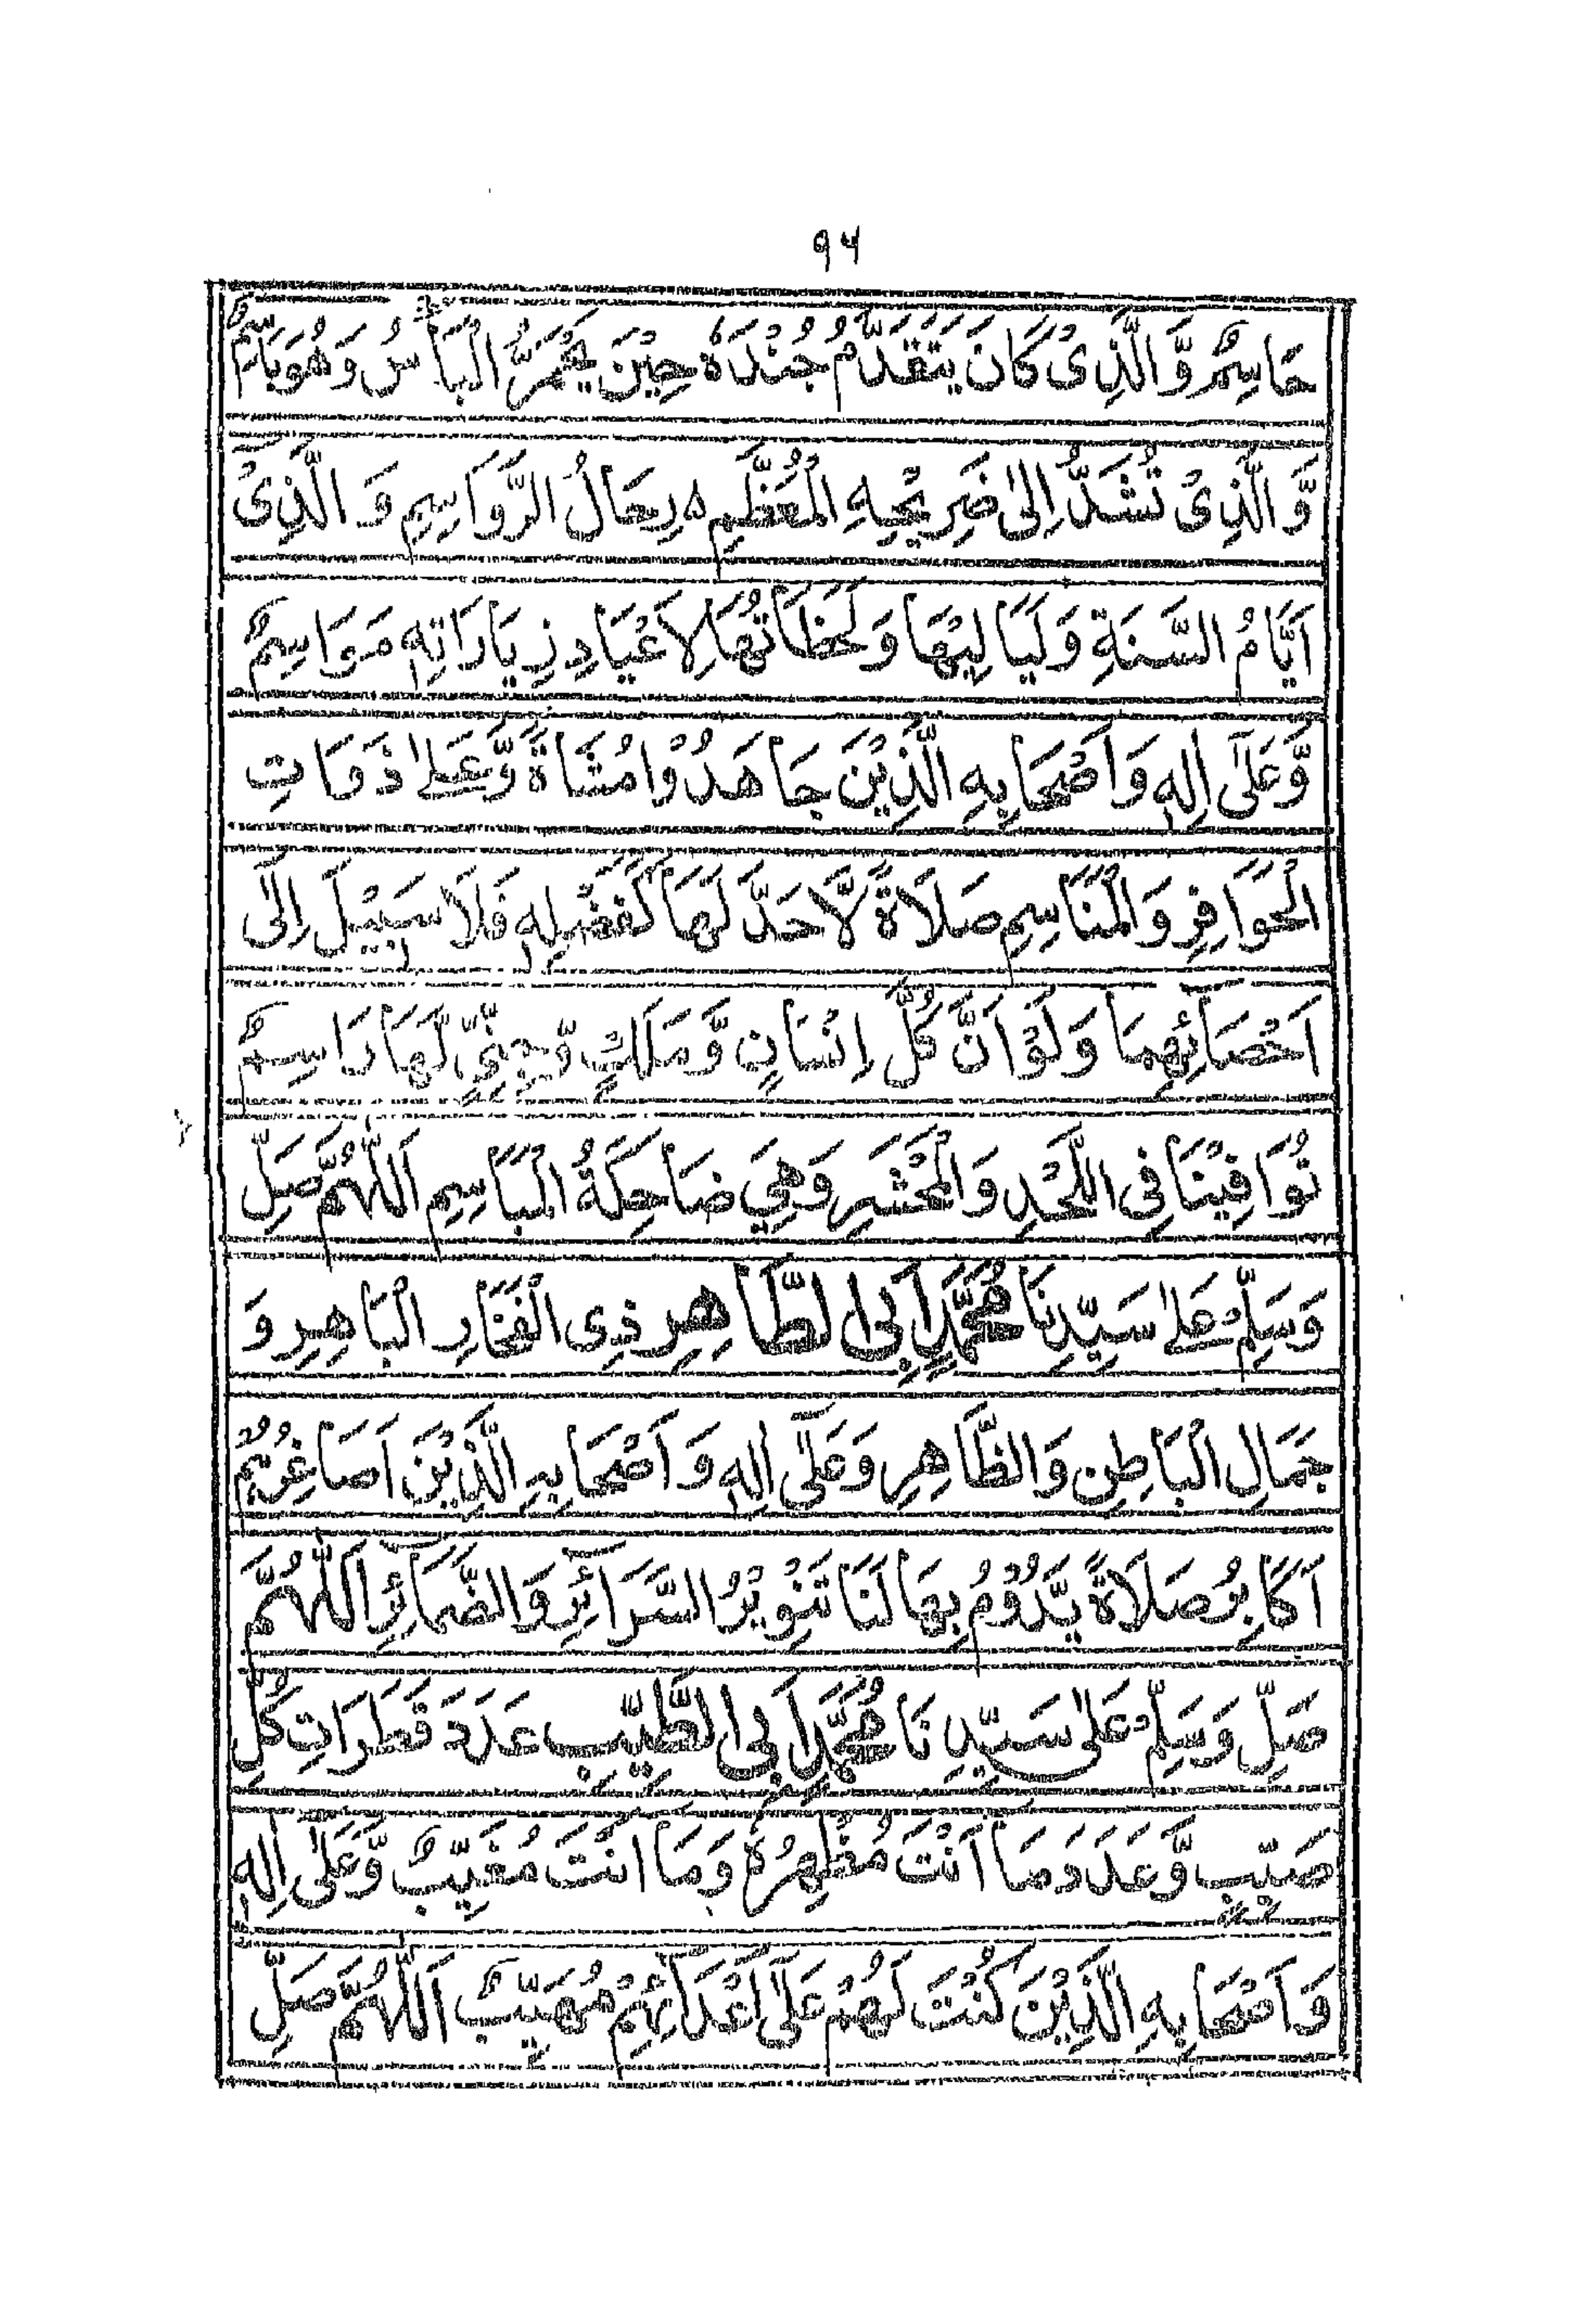 ۹۴
حَاسِمٌ وَّالَّذِیْ كَانَ يَتَقَدَّمُ جُنْدَهٗ حِيْنَ يَحْمَرُّ الْبَأْسُ وَهُوَ بَاسِمٌ
وَّالَّذِیْ تُشَدُّ اِلٰى ضَرِيْحِهِ الْمُعَظَّمِ رِحَالُ الرَّوَاسِمِ وَ الَّذِیْ
اَيَّامُ السَّنَةِ وَلَيَالِيْهَا وَلَحَظَاتُهَا لِاَعْيَادِ زِيَارَاتِهٖ مَوَاسِمٌ
وَّعَلٰٓى اٰلِهٖ وَاَصْحَابِهِ الَّذِيْنَ جَاهَدُوْا مُشَاةً وَّعَلٰى ذَوَاتِ
الْحَوَافِرِ وَالْمَنَاسِمِ صَلَاةً لَّا حَدَّ لَهَا كَفَضْلِهٖ فَلَا سَبِيْلَ اِلٰٓى
اَحْصَائِهِمَا وَلَوْ اَنَّ كُلَّ اِنْسَانٍ وَّمَلَكٍ وَّجِنِّیٍّ لَّهَا رَاسِمٌ
تُوَافِيْنَا فِى اللَّحْدِ وَالْمَحْشَرِ وَهِيَ ضَاحِكَةُ الْمَبَاسِمِ اَللّٰهُمَّ صَلِّ
وَسَلِّمْ عَلٰى سَيِّدِنَا مُحَمَّدٍ اَبِى الطَّاهِرِ ذِى الْفَخَارِ الْبَاهِرِ وَ
جَمَالِ الْبَاطِنِ وَالظَّاهِرِ وَعَلٰٓى اٰلِهٖ وَ اَصْحَابِهِ الَّذِيْنَ اَصَاغِرُهُمْ
اَكَابِرُ صَلَاةً يَّدُوْمُ بِهَا لَنَا تَنْوِيْرُ السَّرَآئِرِ وَالضَّمَآئِرِ اَللّٰهُمَّ
صَلِّ وَسَلِّمْ عَلٰى سَيِّدِنَا مُحَمَّدٍ اَبِى الطَّيِّبِ عَدَدَ قَطَرَاتِ كُلِّ
صَيِّبٍ وَّعَدَدَ مَآ اَنْتَ مُظْهِرُهٗ وَمَا اَنْتَ مُغَيِّبٌ وَّعَلٰٓى اٰلِهٖ
وَاَصْحَابِهِ الَّذِيْنَ كُنْتَ لَهُمْ عَلٰٓى اَعْدَآئِهِمْ مُهَيِّبٌ اَللّٰهُمَّ صَلِّ